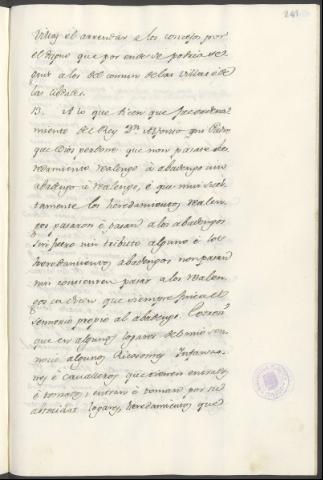 241
villas é el arrendar a los concejos por
el dizmo que por ende se podria se
guir a los del comun de las villas é de
las cibdades.
13. A lo que dicen que por ordena-
miento del Rey Dn Alfonso que Dios,
que Dios perdone que non pasase he-
redamiento realengo á abadengo nin
abadengo á realengo, é que muy suel-
tamente los heredamientos realen-
gos pasaron é pasan á los abadengos
sin pecho nin tributo alguno é los
heredamientos abadengos non pasan
nin consienten pasar a los realen-
gos ca dicen que siempre finca el
señorio propio al abadengo.
que en algunos logares del mio sen-
norio algunos Ricosomes Infanzo-
nes é Cavalleros que tienen entrados
é tomados, é entran é toman por su
abtoridat logares, heredamientos que